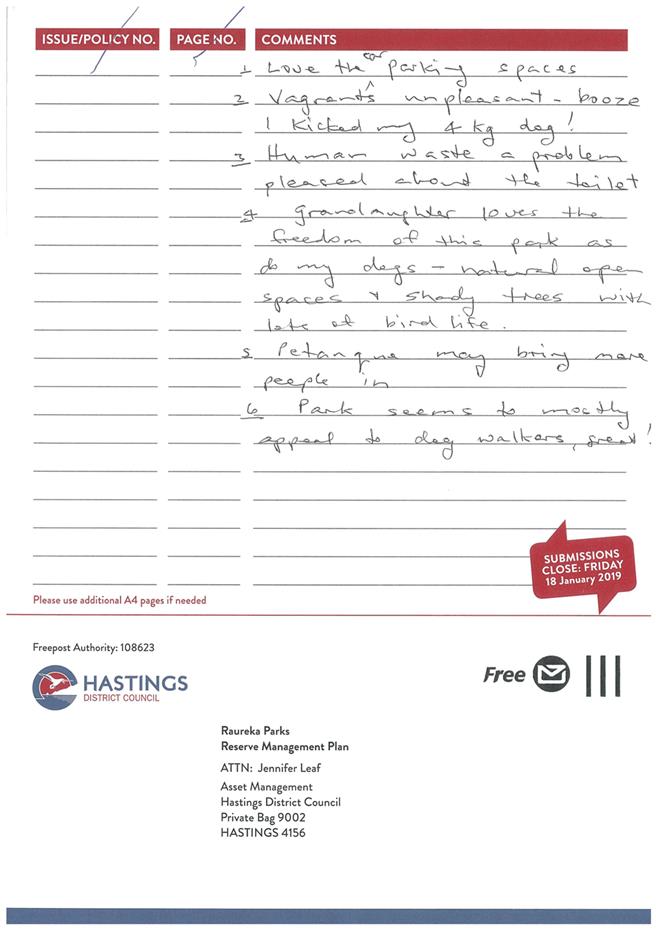 ISSUE/POLICY NO. PAGE NO. COMMENTS
1 Love the car parking spaces
2 Vagrants unpleasant - booze
1 kicked my 4 kg dog!
3 Human waste a problem
pleased about the toilet
4 Grandaughter loves the
freedom of this park as
do my dogs - natural open
spaces & shady trees with
lots of bird life.
5 Petanque may bring more
people in
6 Park seems to mostly
appeal to dog walkers, great!
SUBMISSIONS
CLOSE: FRIDAY
18 January 2019
Please use additional A4 pages if needed
Freepost Authority: 108623
HASTINGS
DISTRICT COUNCIL
Free
Raureka Parks
Reserve Management Plan
ATTN: Jennifer Leaf
Asset Management
Hastings District Council
Private Bag 9002
HASTINGS 4156